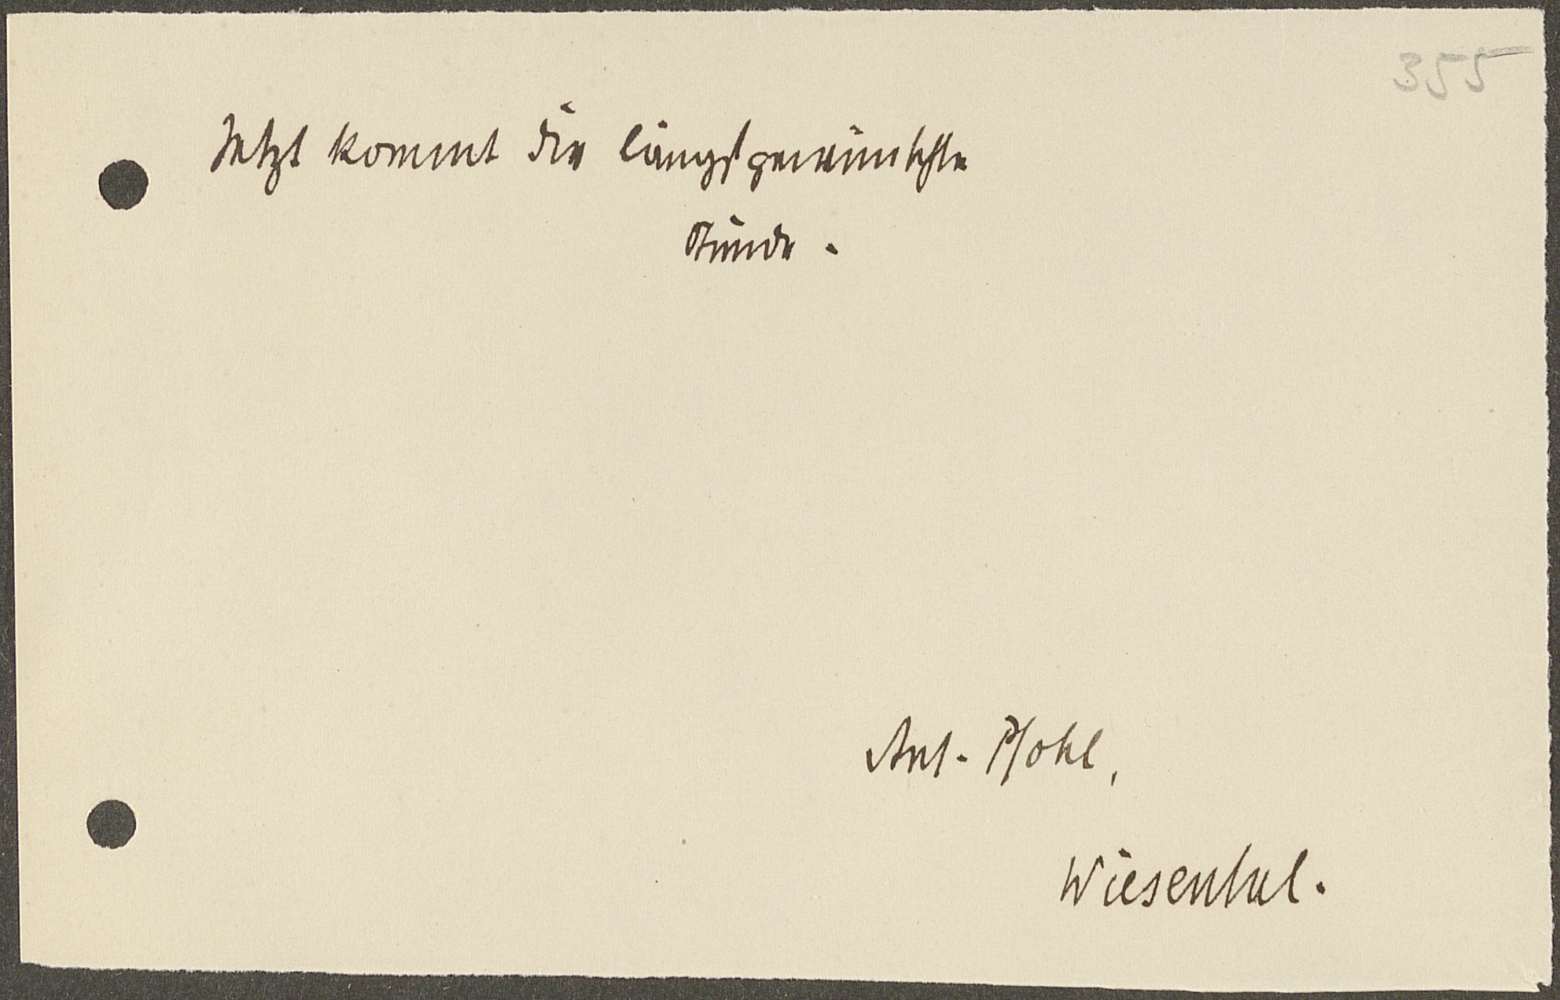 355
Jetzt kommt die längstgewünschte
Stunde.
Ant. Pfohl,
Wiesental.